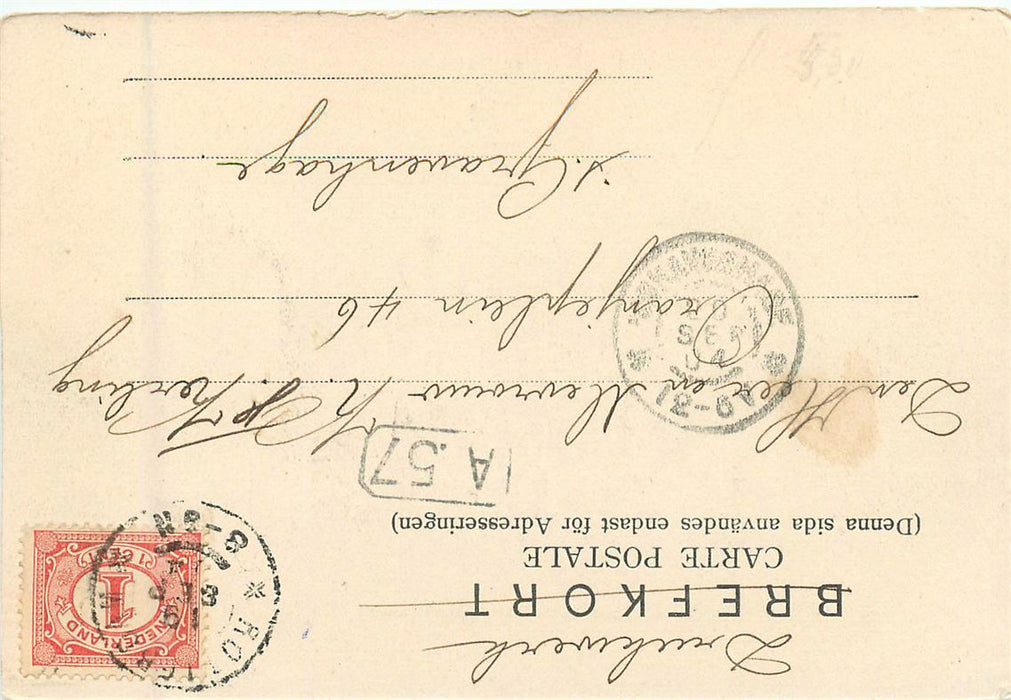 Drukwerk
BREFKORT
CARTE POSTALE
(Denna sida användes endast för Adresseringen)
NEDERLAND
1 CENT
1
8-9N
A.57
12-6V
SEP
Den Heer en Mevrouw
Oranjeplein 46
s.Gravenhage